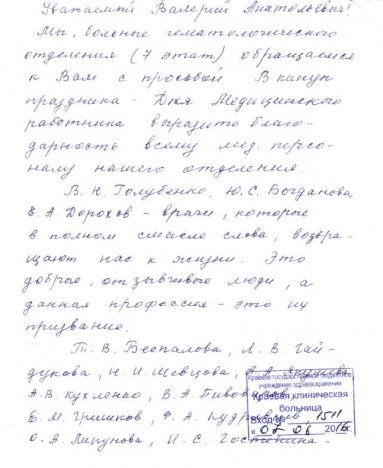 Уважаемый Валерий Анатольевич!
Мы, больные гематологического
отделения (7 этаж) обращаемся
к Вам с просьбой В канун
праздника - Дня Медицинского
работника выразить благо-
дарность всему мед. персо-
налу нашего отделения.
В. Н. Голубенко, Ю. С. Богданова,
Е. А. Дорохов - врачи, которые
в полном смысле слова, возвра-
щают нас к жизни. Это
добрые, отзывчивые люди, а
данная профессия - это их
призвание.
Т. В. Беспалова, Л. В. Гай-
дукова, Н. И. Шевцова, А. А.
А. В. Кухленко, В. А.
Е. М. Гришков, Ф. А.
О. А. Липунова, И. С.
Краевое государственное бюджетное
учреждение здравоохранения
Краевая клиническая
больница
Вход № 1511
« 07 06 2016г.